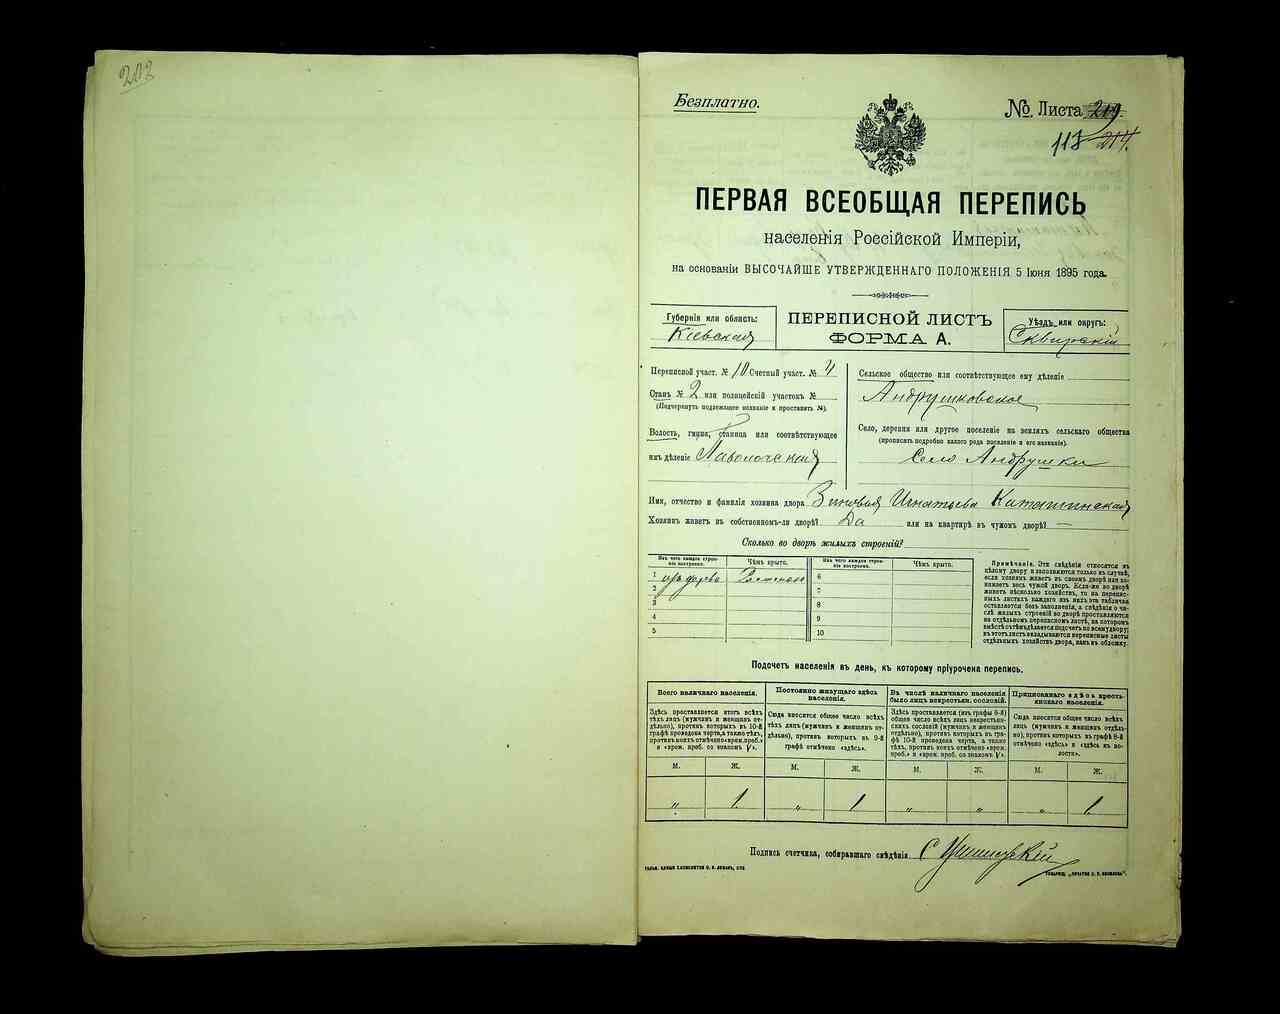 203
Безплатно.
№ Листа 219.
113 214.
ПЕРВАЯ ВСЕОБЩАЯ ПЕРЕПИСЬ
населенія Россійской Имперіи,
на основаніи ВЫСОЧАЙШЕ УТВЕРЖДЕННАГО ПОЛОЖЕНІЯ 5 Іюня 1895 года.
Губернія или область:
Кіевская
ПЕРЕПИСНОЙ ЛИСТЪ
ФОРМА А.
Уѣздъ или округъ:
Сквирскій
Переписной участ. № 10 Счетный участ. № 4
Станъ № 2 или полицейскій участокъ №
(Подчеркнуть подлежащее названіе и проставить №).
Волость, гмина, станица или соотвѣтствующее
имъ дѣленіе Паволочская
Сельское общество или соотвѣтствующее ему дѣленіе
Андрушковское
Село, деревня или другое поселеніе на земляхъ сельскаго общества
(прописать подробно какого рода поселеніе и его названіе).
Село Андрушки
Имя, отчество и фамилія хозяина двора Зиновія Игнатьева
Хозяинъ живетъ въ собственномъ-ли дворѣ? Да или на квартирѣ въ чужомъ дворѣ? —
Сколько во дворѣ жилыхъ строеній?
Изъ чего каждое строеніе построено.
Чѣмъ крыто.
Изъ чего каждое строеніе построено.
Чѣмъ крыто.
1 изъ дерева 6
2 7
3 8
4 9
5 10
Примѣчаніе. Эти свѣдѣнія относятся къ
цѣлому двору и заполняются только въ случаѣ,
если хозяинъ живетъ въ своемъ дворѣ или занимаетъ
весь чужой дворъ. Если-же во дворѣ
живетъ нѣсколько хозяйствъ, то на переписныхъ
листахъ каждаго изъ нихъ эта табличка
оставляется безъ заполненія, а свѣдѣнія о числѣ
жилыхъ строеній во дворѣ проставляются
на отдѣльномъ переписномъ листѣ, на которомъ
вмѣстѣ съ тѣмъ дѣлается подсчетъ по всему двору;
въ этотъ листъ вкладываются переписные листы
отдѣльныхъ хозяйствъ двора, какъ въ обложку.
Подсчетъ населенія въ день, къ которому пріурочена перепись.
Всего наличнаго населенія.
Постоянно живущаго здѣсь населенія.
Въ числѣ наличнаго населенія было лицъ некрестьян. сословій.
Приписаннаго здѣсь крестьянскаго населенія.
Здѣсь проставляется итогъ всѣхъ
тѣхъ лицъ (мужчинъ и женщинъ отдѣльно),
противъ которыхъ въ 10-й
графѣ проведена черта, а также тѣхъ,
противъ коихъ отмѣчено «врем. преб.»
и «врем. преб. со знакомъ V».
Сюда вносится общее число всѣхъ
тѣхъ лицъ (мужчинъ и женщинъ отдѣльно),
противъ которыхъ въ 9-й
графѣ отмѣчено «здѣсь».
Здѣсь проставляется (изъ графы 8-й)
общее число всѣхъ лицъ некрестьянскихъ
сословій (мужчинъ и женщинъ
отдѣльно), противъ которыхъ въ графѣ
10-й проведена черта, а также
тѣхъ, противъ коихъ отмѣчено «врем.
преб.» и «врем. преб. со знакомъ V».
Сюда вносится общее число всѣхъ
лицъ (мужчинъ и женщинъ отдѣльно),
противъ которыхъ въ графѣ 8-й
отмѣчено «здѣсь» и «здѣсь къ волости».
М. Ж. М. Ж. М. Ж. М. Ж.
" 1 " 1 " " " 1
Подпись счетчика, собиравшаго свѣдѣнія